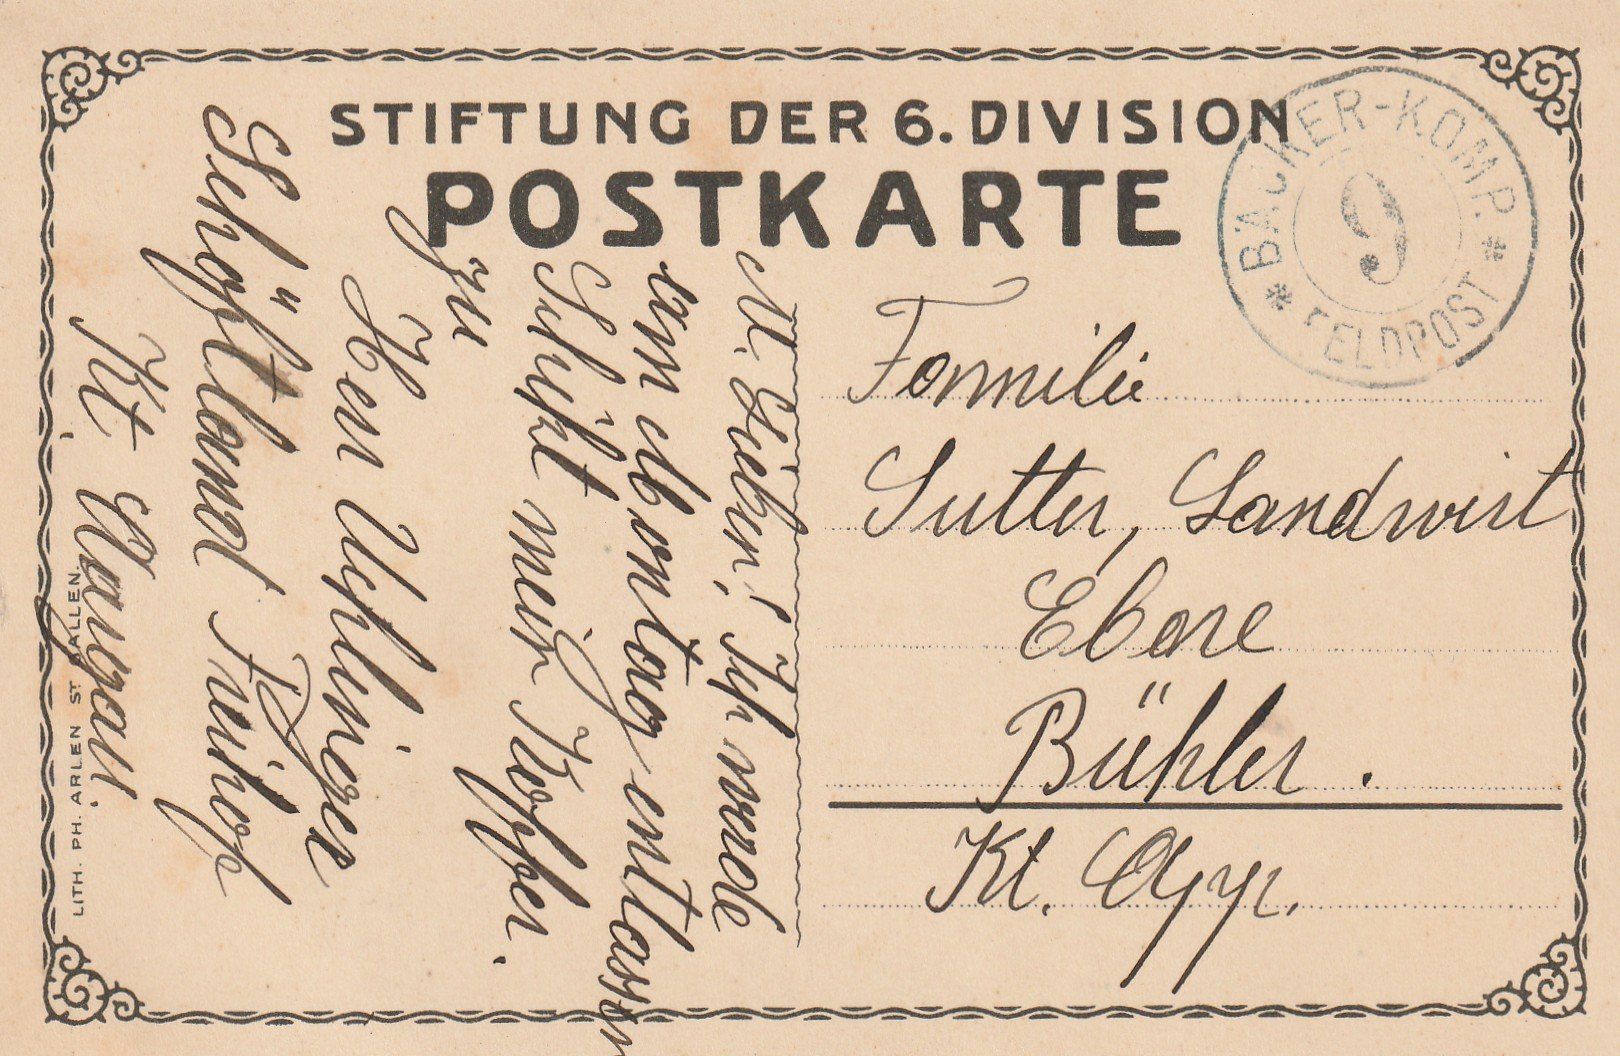 STIFTUNG DER 6. DIVISION
POSTKARTE
BÄCKER-KOMP.
9
FELDPOST
M. Lieben! Ich werde
am Montag entlassen
Schickt mein Koffer.
zu
Herr Uehlinger
Schöftland Freihof
Kt. Aargau.
Familie
Sutter, Landwirt
Ebne
Bühler.
Kt. App.
LITH. PH. ARLEN ST GALLEN.